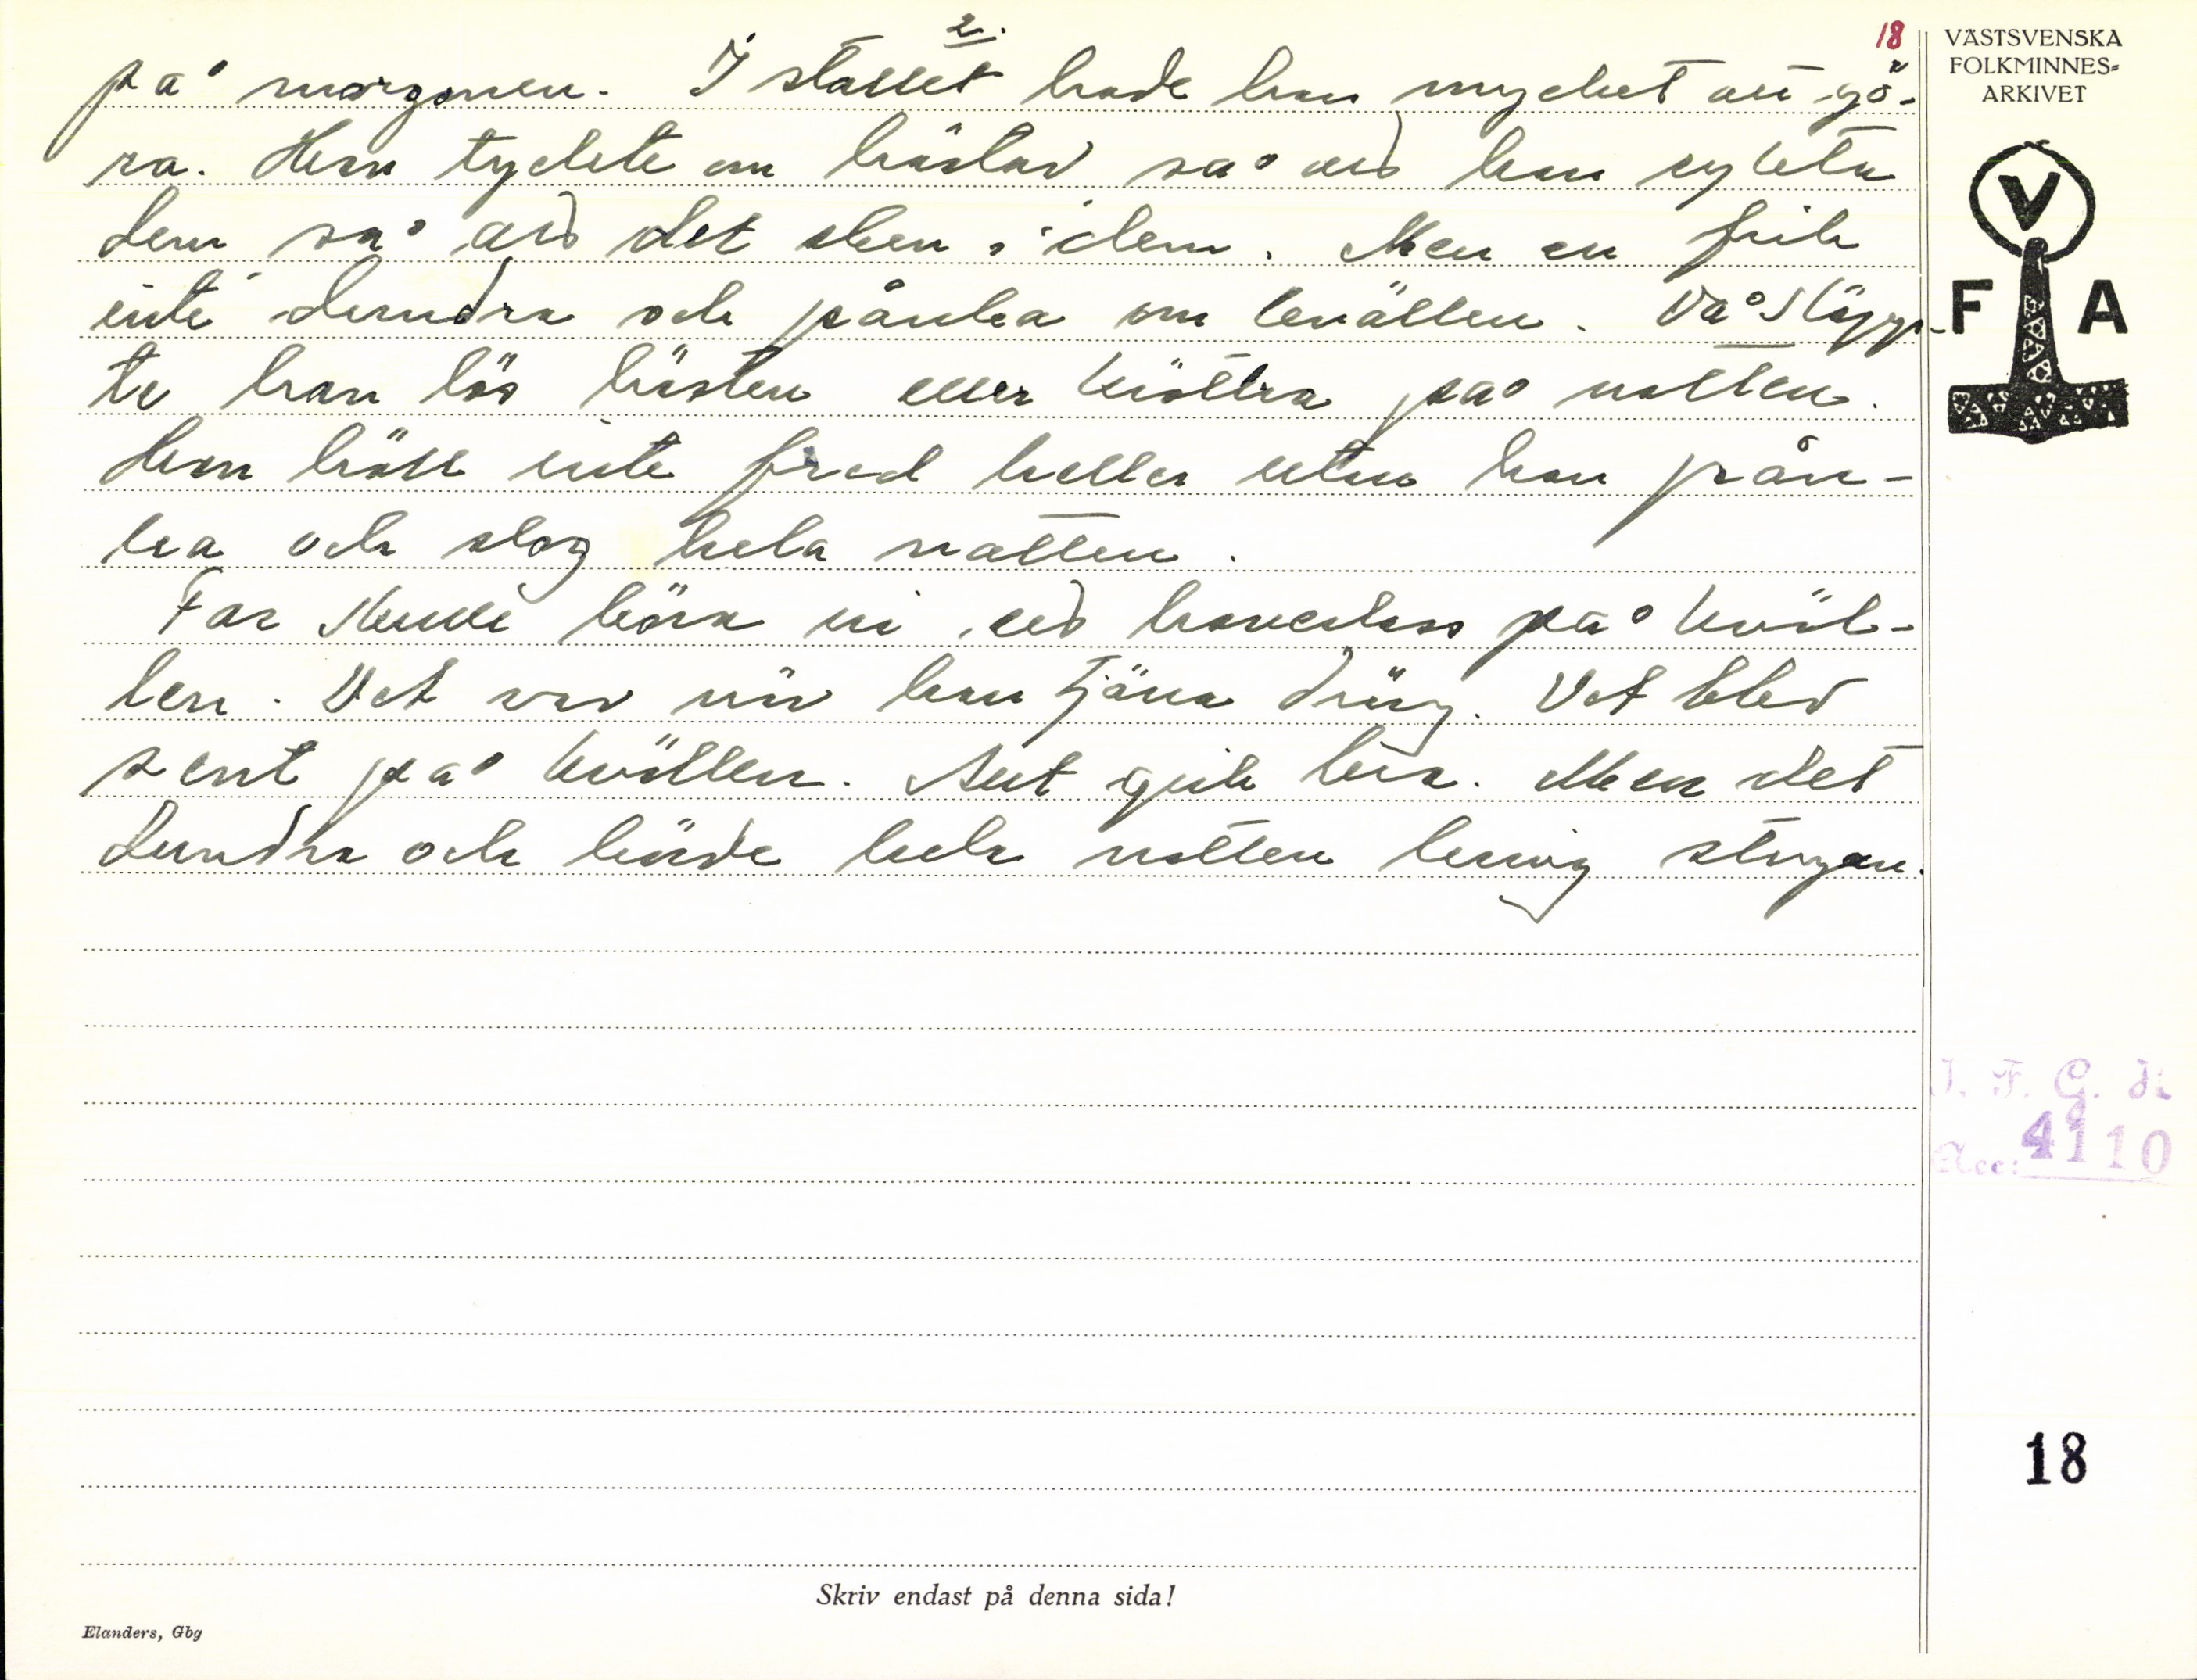 2.
18
på morgonen. I stallet hade han mycket att gö-
ra. Han tyckte om hästar så att han rykta
dem så att det sken i dem. Men en fick
inte dundra och pånka om kvällen. Då släpp-
te han lös hästen eller kröttra på natten.
Han höll inte fred heller utan han pån-
ka och slog hela natten.
Far skulle höra ni ett hanaslass på kväl-
len. Det var när han tjäna dräng. Det blev
sent på kvällen. Allt gick bra. Men det
dundra och körde hela natten kring stugan.
VÄSTSVENSKA
FOLKMINNES-
ARKIVET
V
F A
I. F. G. H.
Acc: 4110
18
Skriv endast på denna sida!
Elanders, Gbg